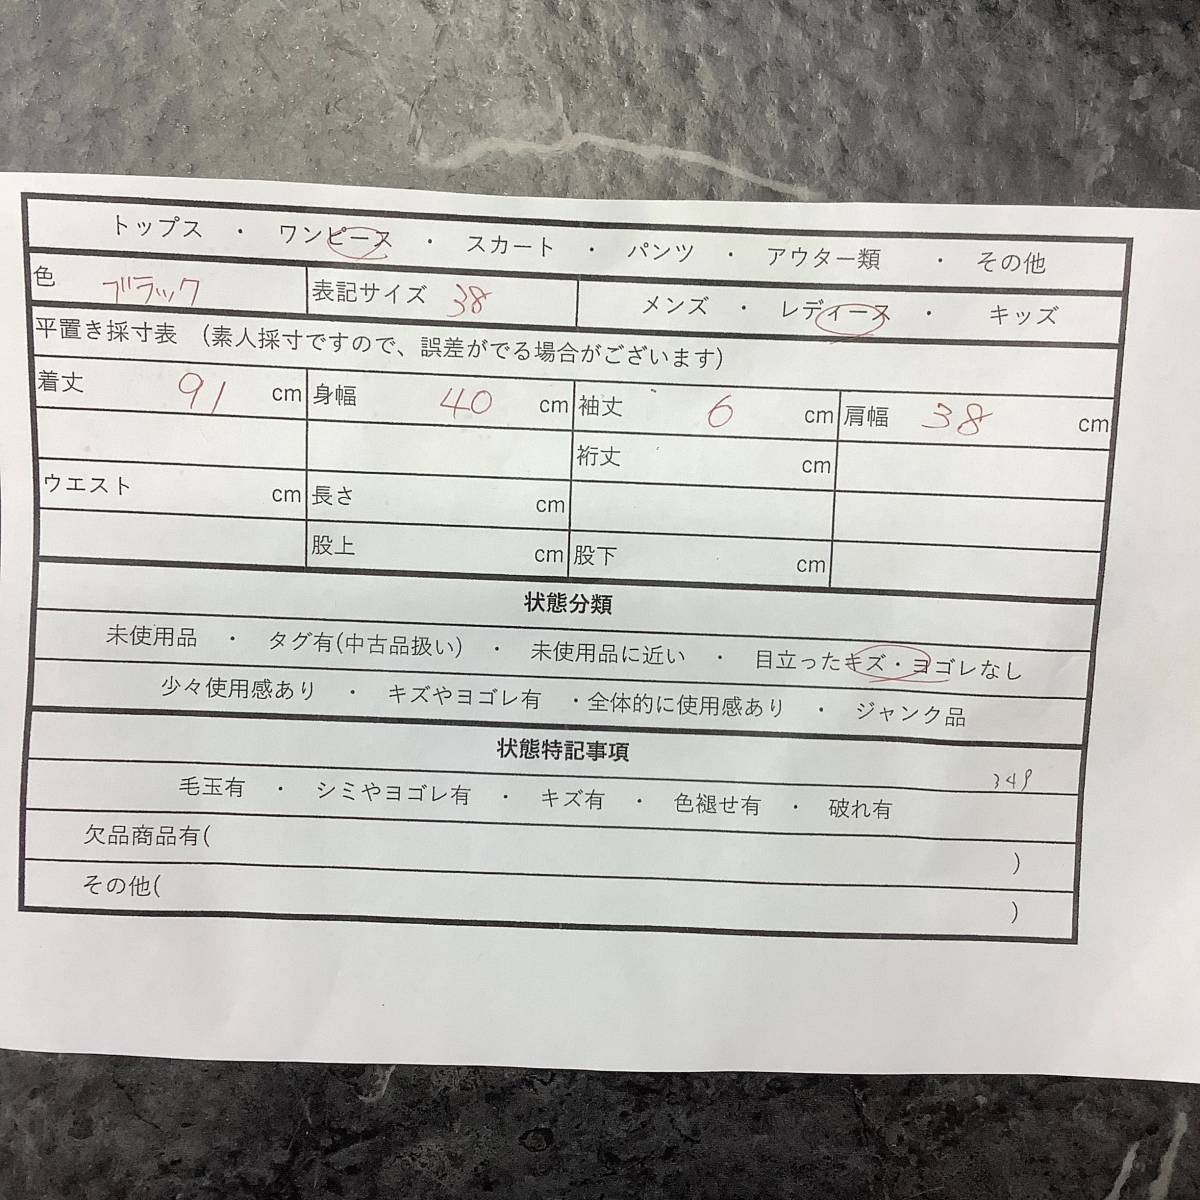 トップス ・ ワンピース ・ スカート ・ パンツ ・ アウター類 ・ その他
色 ブラック 表記サイズ 38 メンズ ・ レディース ・ キッズ
平置き採寸表 (素人採寸ですので、誤差がでる場合がございます)
着丈 91 cm 身幅 40 cm 袖丈 6 cm 肩幅 38 cm
裄丈 cm
ウエスト cm 長さ cm
股上 cm 股下 cm
状態分類
未使用品 ・ タグ有(中古品扱い) ・ 未使用品に近い ・ 目立ったキズ・ヨゴレなし
少々使用感あり ・ キズやヨゴレ有 ・全体的に使用感あり ・ ジャンク品
状態特記事項
349
毛玉有 ・ シミやヨゴレ有 ・ キズ有 ・ 色褪せ有 ・ 破れ有
欠品商品有( )
その他( )